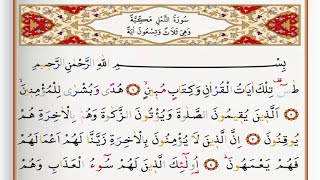 سُورَةُ النَّمْلِ مَكِّيَّةٌ
وَهِيَ ثَلَاثٌ وَتِسْعُونَ اٰيَةً
بِسْمِ اللّٰهِ الرَّحْمٰنِ الرَّحٖيمِ
طٰسٓ تِلْكَ اٰيَاتُ الْقُرْاٰنِ وَكِتَابٍ مُبٖينٍۙ ﴿١﴾ هُدًى وَبُشْرٰى لِلْمُؤْمِنٖينَۙ
﴿٢﴾ اَلَّذٖينَ يُقٖيمُونَ الصَّلٰوةَ وَيُؤْتُونَ الزَّكٰوةَ وَهُمْ بِالْاٰخِرَةِ هُمْ
يُوقِنُونَ ﴿٣﴾ اِنَّ الَّذٖينَ لَا يُؤْمِنُونَ بِالْاٰخِرَةِ زَيَّنَّا لَهُمْ اَعْمَالَهُمْ
فَهُمْ يَعْمَهُونَۜ ﴿٤﴾ اُو۬لٰٓئِكَ الَّذٖينَ لَهُمْ سُٓوءُ الْعَذَابِ وَهُمْ